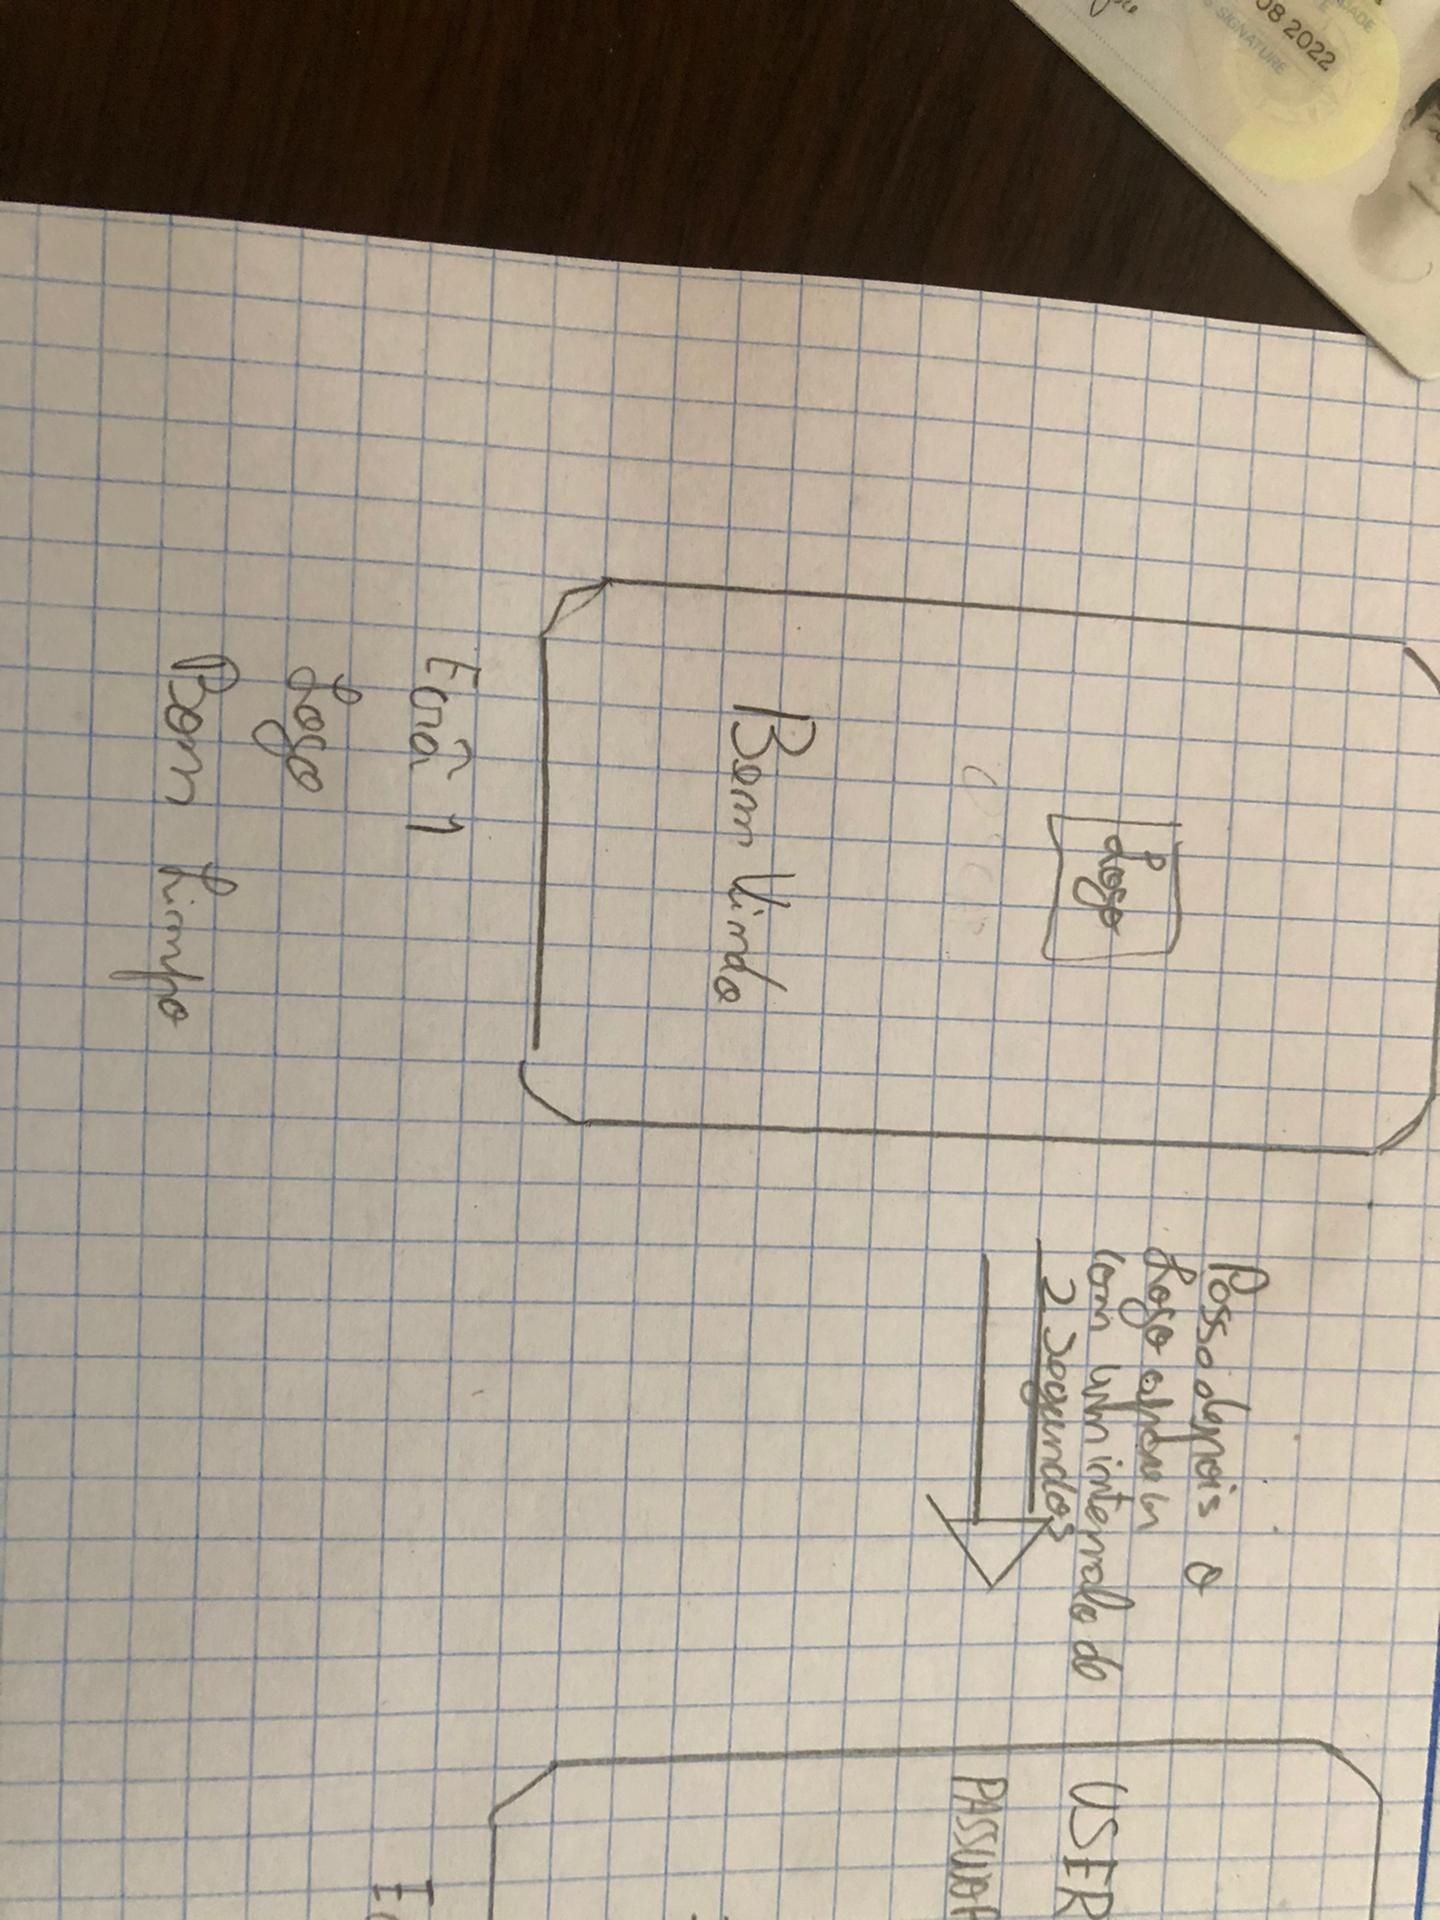 08 2022
SIGNATURE
Logo
Bem Vindo
Ecrã 1
Logo
Bem Limpo
Passo depois o
Logo
com um intervalo de
2 segundos
USER